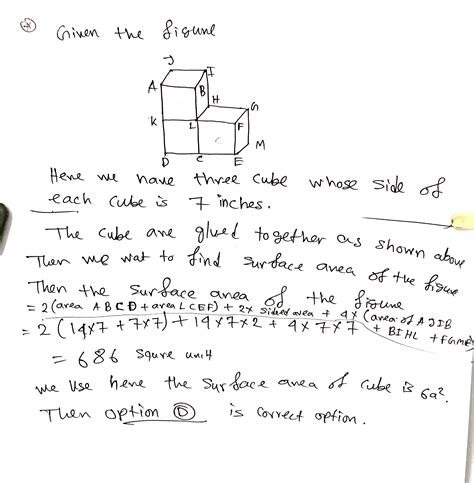 Given the figure
J
I
A
B
H
G
K
L
F
M
D
C
E
Here we have three cube whose side of
each cube is 7 inches.
The cube are glued together as shown above
Then we wat to find surface area of the figure
Then the surface area of the figure
= 2(area ABCD + area LCEF) + 2x sided area + 4x (area of AJIB
= 2(14x7 + 7x7) + 14x7x2 + 4x7x7 + BIHL + FGME)
= 686 squre unit
we use here the surface area of cube is 6a².
Then option D is correct option.